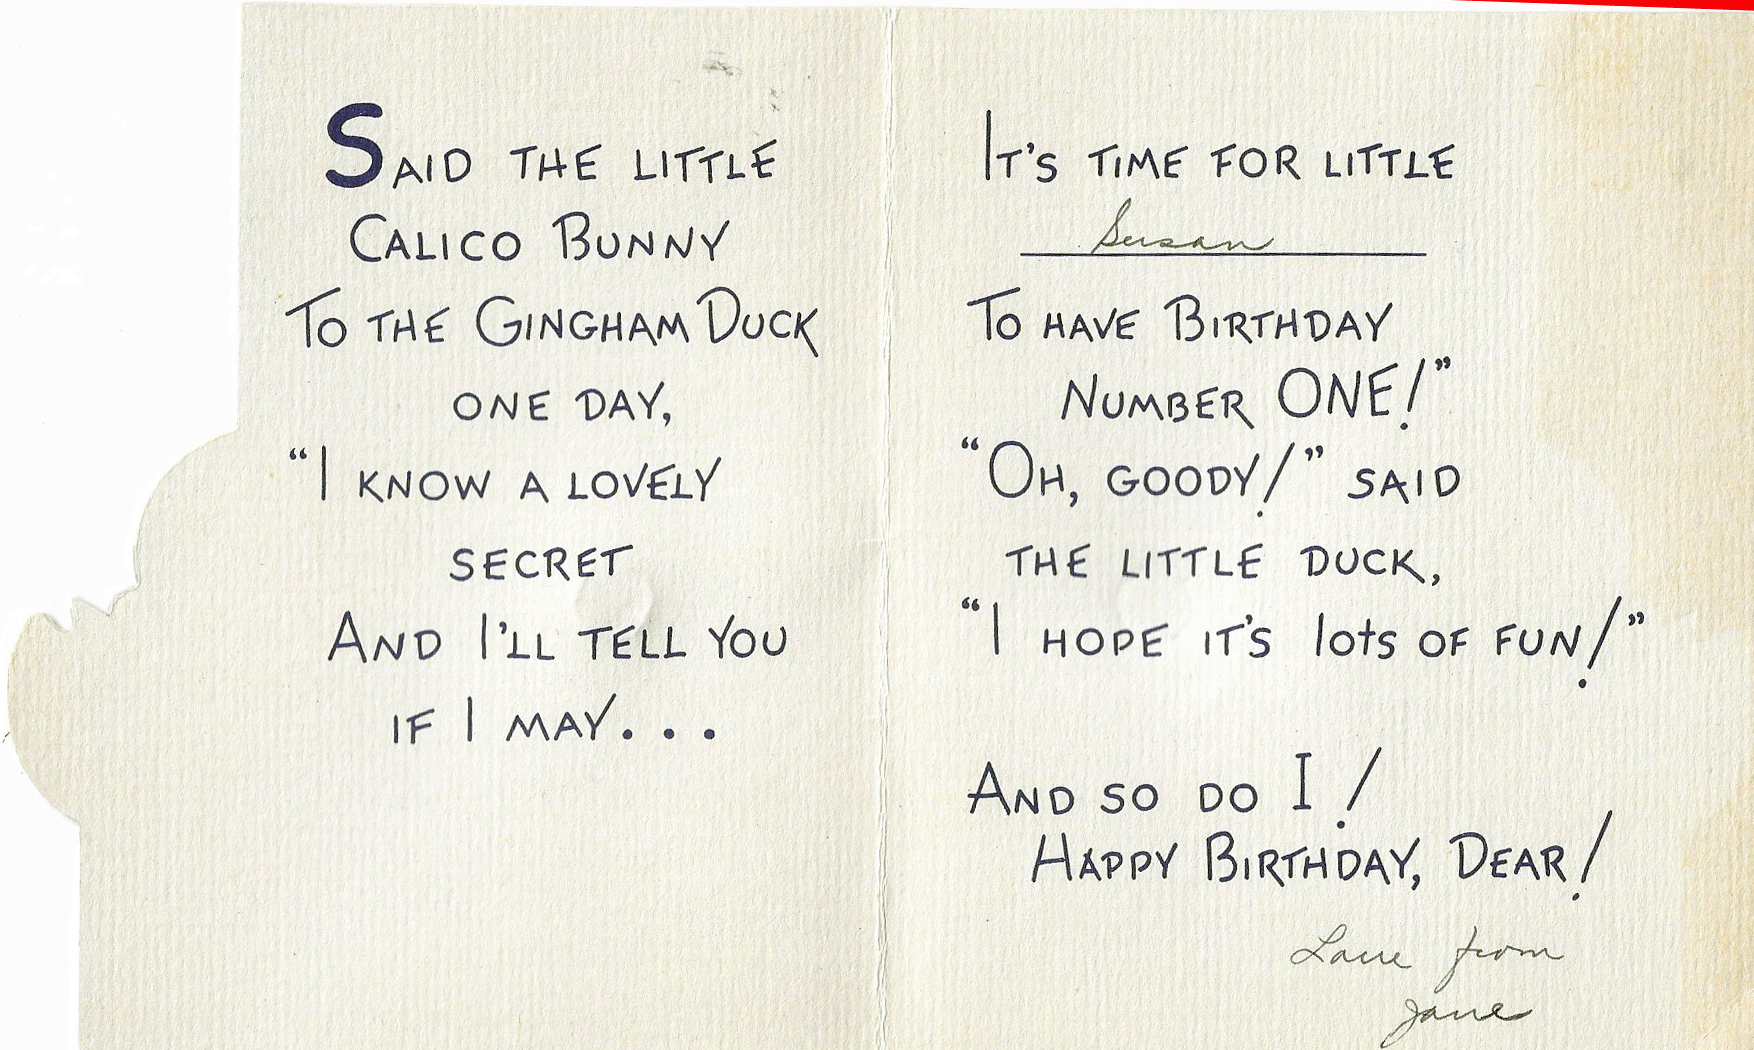 Said the little
Calico Bunny
To the Gingham Duck
one day,
“I know a lovely
secret
And I'll tell you
if I may...
It's time for little
Susan
To have Birthday
Number ONE!”
“Oh, goody!” said
the little duck,
“I hope it's lots of fun!”
And so do I!
Happy Birthday, Dear!
Love from
Jane